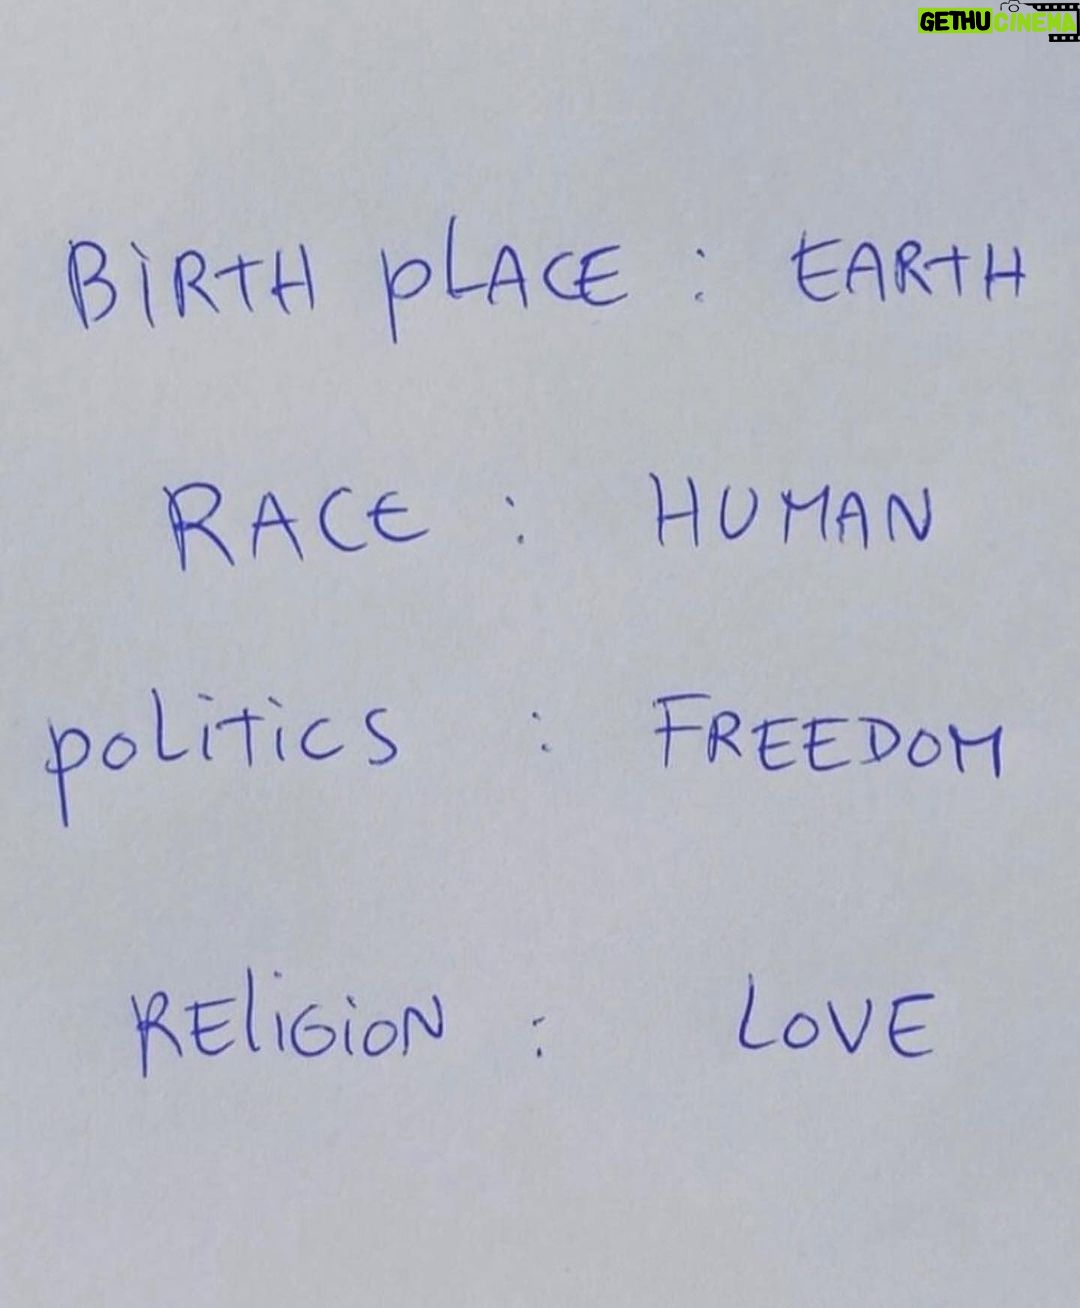 GETHUCINEMA
BiRTH pLACE : EARTH
RACE : HUMAN
poLiTiCS : FREEDOM
REliGiON : LOVE